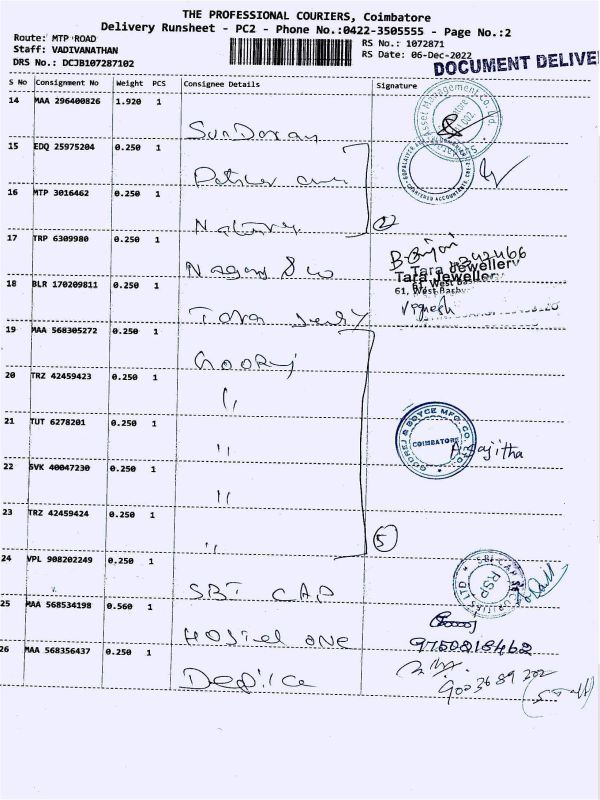 THE PROFESSIONAL COURIERS, Coimbatore
Delivery Runsheet - PC2 - Phone No.:0422-3505555 - Page No.:2
Route: MTP ROAD
Staff: VADIVANATHAN
DRS No.: DCJB107287102
RS No.: 1072871
RS Date: 06-Dec-2022
DOCUMENT DELIVE
S No Consignment No Weight PCS Consignee Details Signature
14 MAA 296400826 1.920 1
15 EDQ 25975204 0.250 1
16 MTP 3016462 0.250 1
17 TRP 6309980 0.250 1
Tara Jewellery
Tara Jewellery
61, West
18 BLR 170209811 0.250 1
61, West Basby
Vignesh
Tara
19 MAA 568305272 0.250 1
20 TRZ 42459423 0.250 1
"
21 TUT 6278201 0.250 1
GODREJ & BOYCE MFG. CO. LTD
COIMBATORE
A. Sajitha
"
22 SVK 40047230 0.250 1
"
23 TRZ 42459424 0.250 1
"
5
24 VPL 908202249 0.250 1
SBI CAP SECURITIES LTD
RSP
SBI CAP
25 MAA 568534198 0.560 1
Hostel one
9750818462
26 MAA 568356437 0.250 1
9003689202
(Staff)